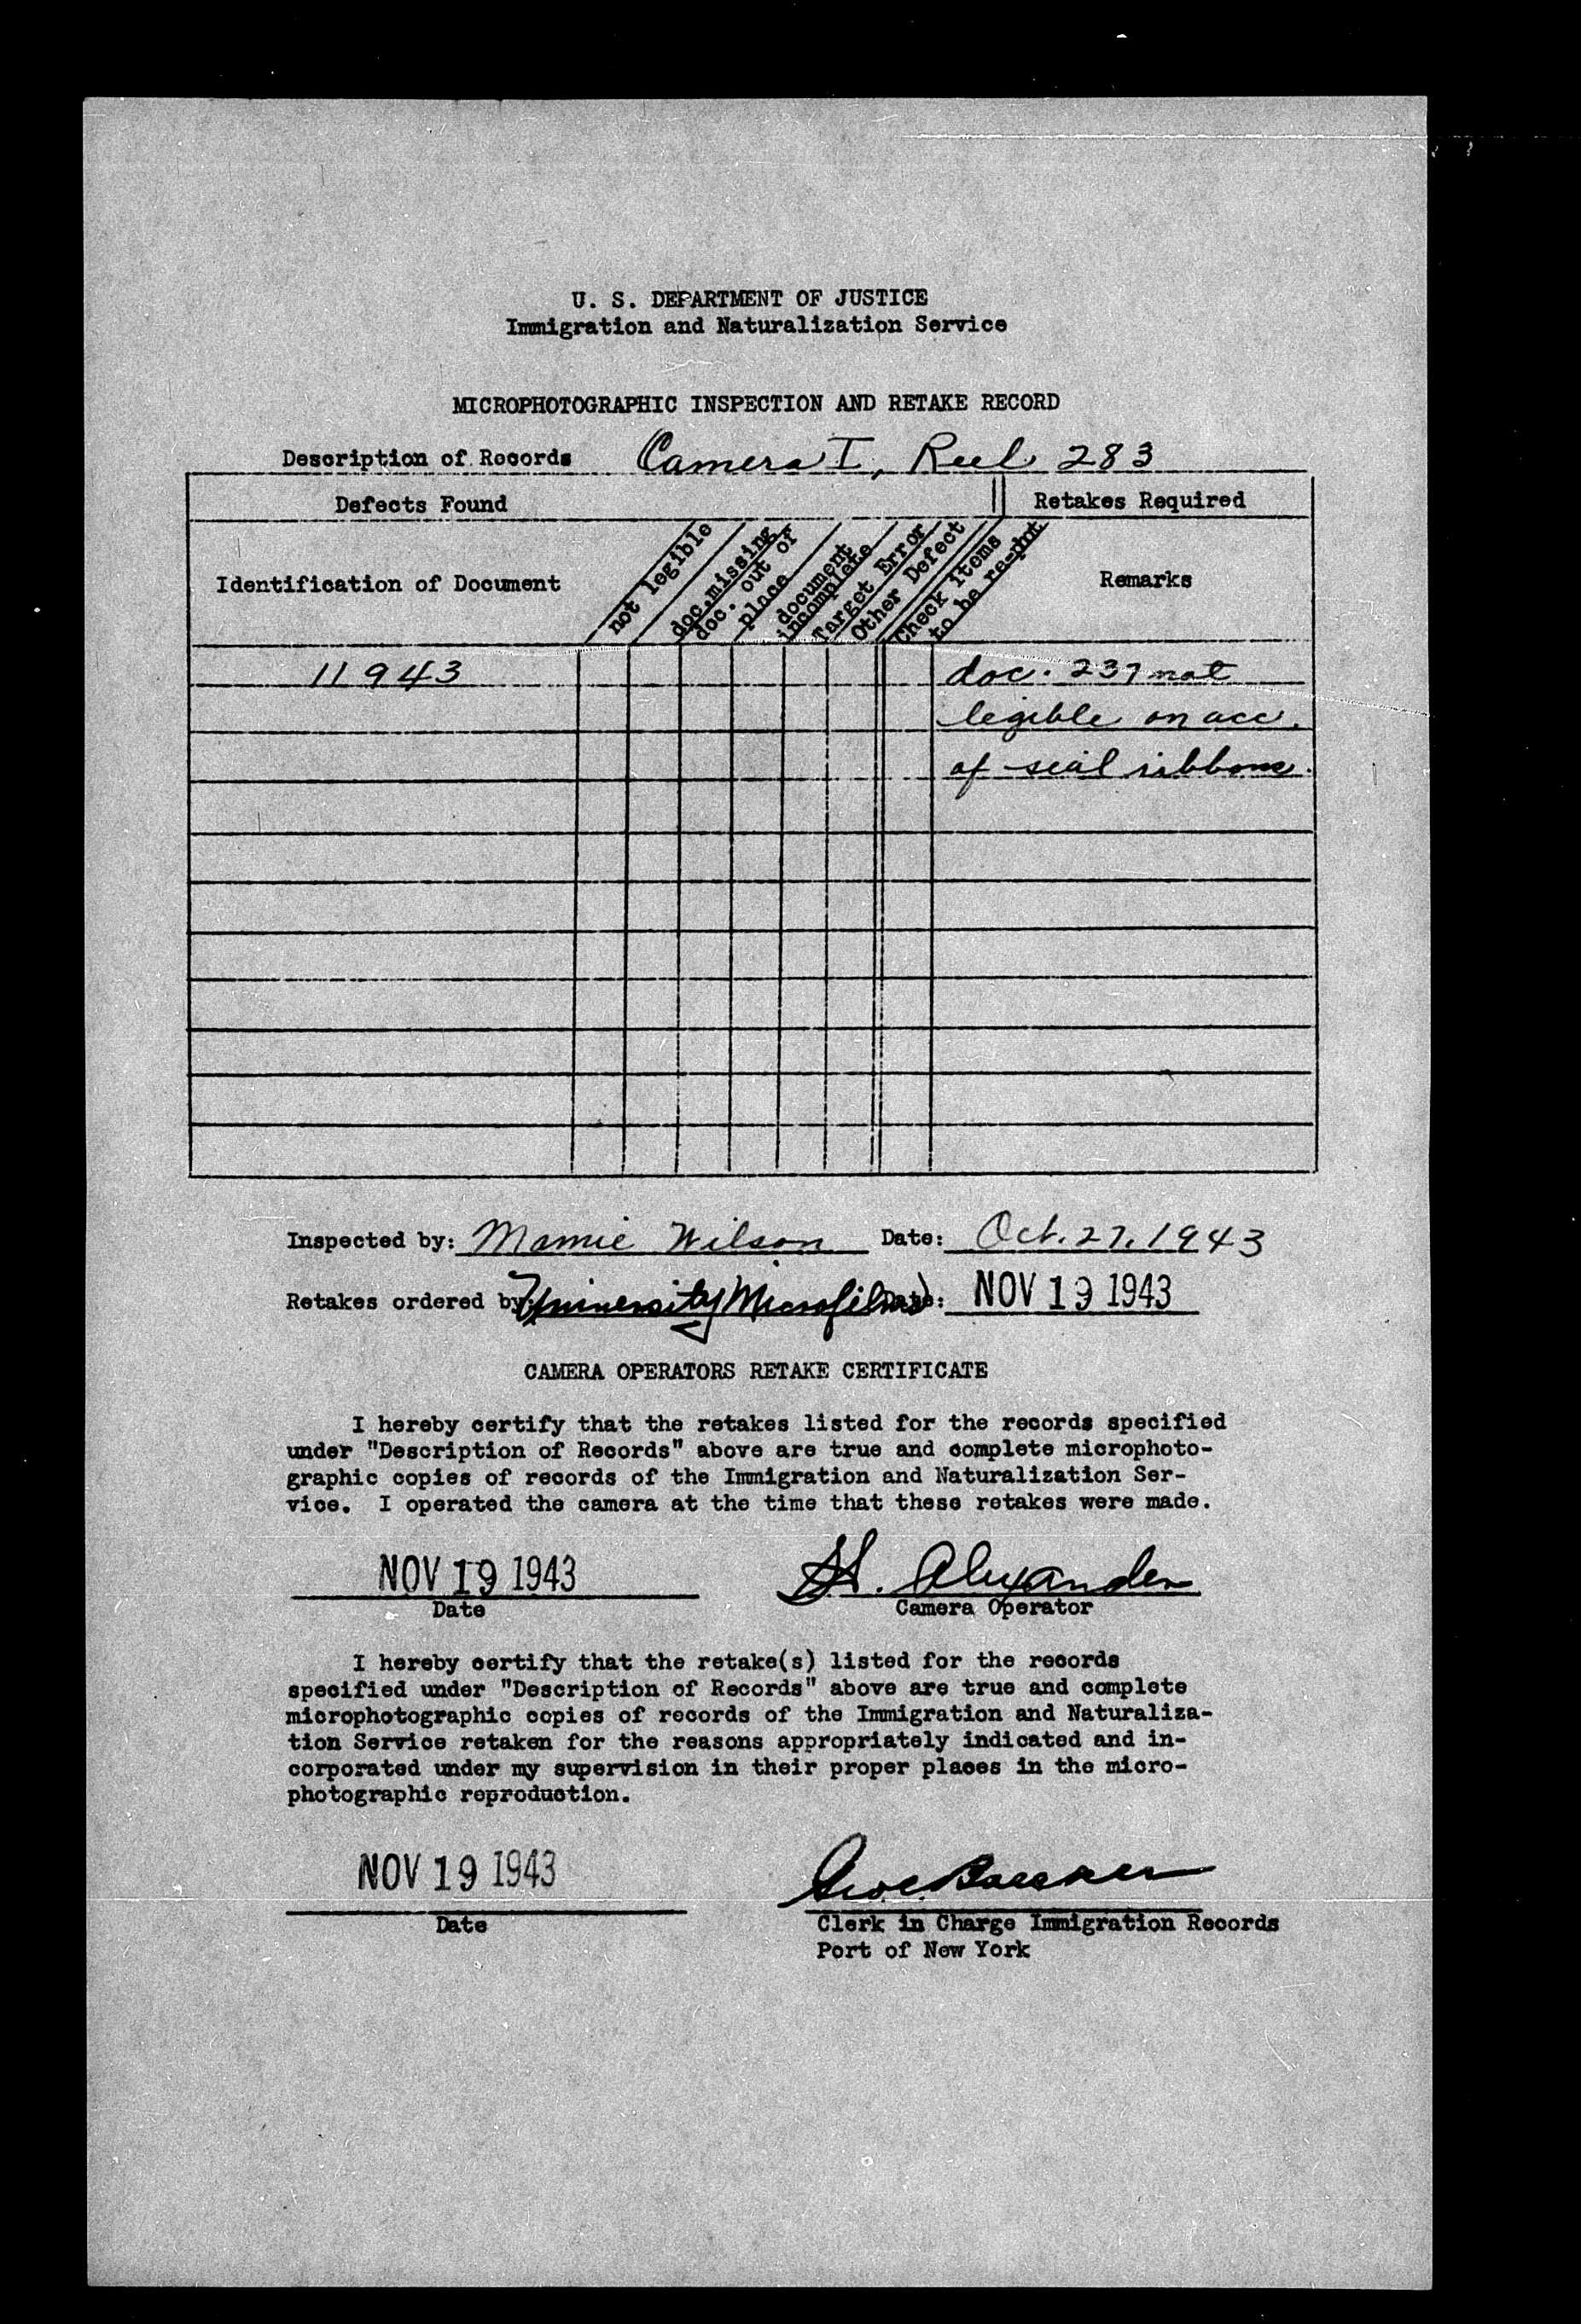 U. S. DEPARTMENT OF JUSTICE
Immigration and Naturalization Service
MICROPHOTOGRAPHIC INSPECTION AND RETAKE RECORD
Description of Records Camera I, Reel 283
Defects Found Retakes Required
Identification of Document
not legible
doc. missing
doc. out of
place
document
incomplete
Target Error
Other Defect
Check items
to be re-pht
Remarks
11943 doc. 237 not
legible on acc.
of seal ribbons.
Inspected by: Mamie Wilson Date: Oct. 27, 1943
Retakes ordered by: University Microfilms Date: NOV 19 1943
CAMERA OPERATORS RETAKE CERTIFICATE
I hereby certify that the retakes listed for the records specified
under "Description of Records" above are true and complete microphoto-
graphic copies of records of the Immigration and Naturalization Ser-
vice. I operated the camera at the time that these retakes were made.
NOV 19 1943 H. Alexander
Date Camera Operator
I hereby certify that the retake(s) listed for the records
specified under "Description of Records" above are true and complete
microphotographic copies of records of the Immigration and Naturaliza-
tion Service retaken for the reasons appropriately indicated and in-
corporated under my supervision in their proper places in the micro-
photographic reproduction.
NOV 19 1943
Date Clerk in Charge Immigration Records
Port of New York